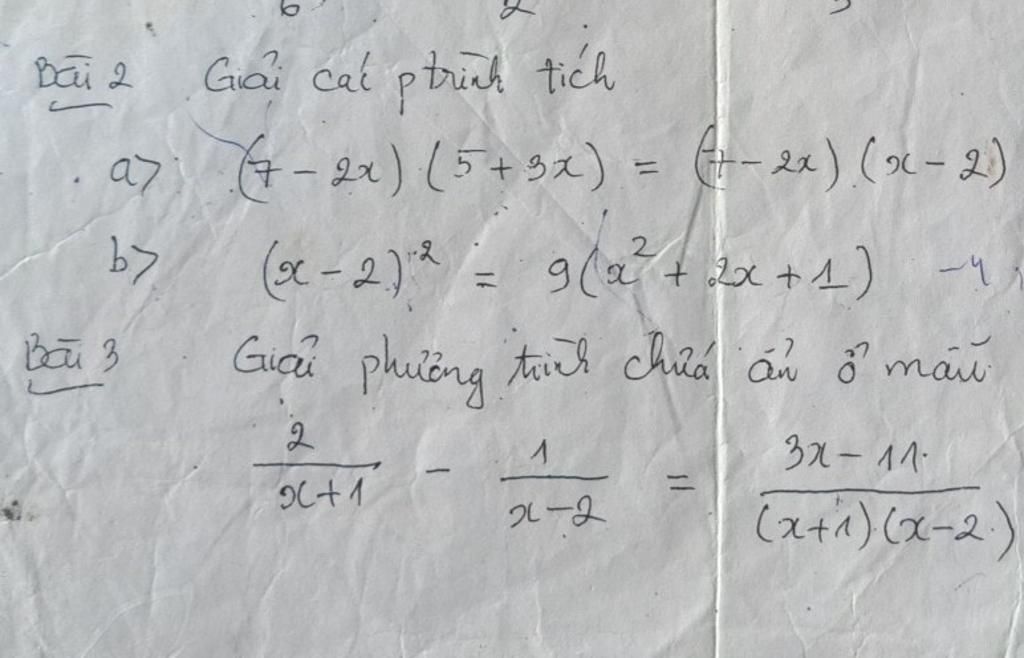 Bài 2 Giải các ptrình tích
a> (7 - 2x) (5 + 3x) = (7 - 2x) (x - 2)
b> (x - 2)² = 9(x² + 2x + 1) -4
Bài 3 Giải phương trình chứa ẩn ở mẫu
2/(x+1) - 1/(x-2) = (3x - 11)/((x+1).(x-2))